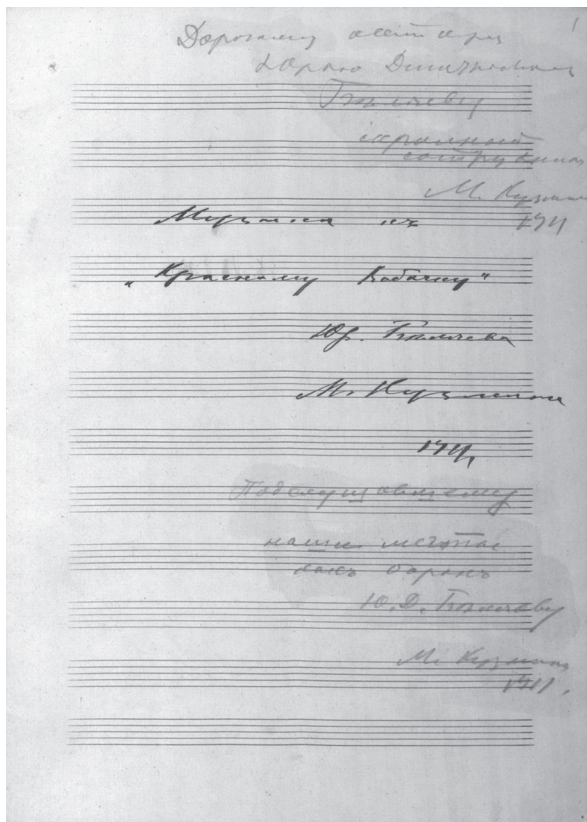 1
Дорогому автору
Юрію Дмитріевичу
Бѣляеву
скромный
сотрудникъ
М. Кузминъ
1911
Музыка къ
„Красному Кабачку"
Юр. Бѣляева
М. Кузмина
1911
Подслушавшему
наши мечты
Ю. Д. Бѣляеву
М. Кузминъ
1911.